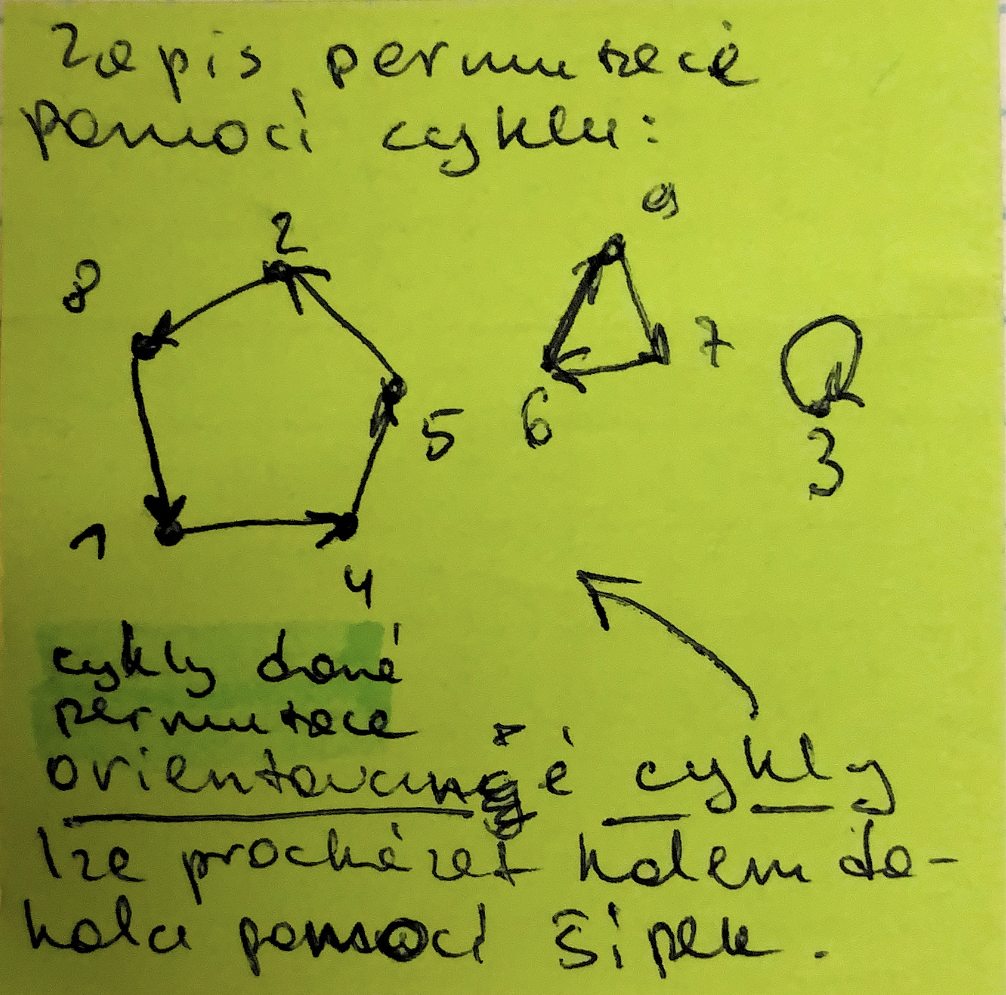 Zápis permutací
pomocí cyklu:
2
9
8
7
5
6
3
1
4
cykly dané
permutace
orientované cykly
lze procházet kolem do-
kola pomocí šipek.